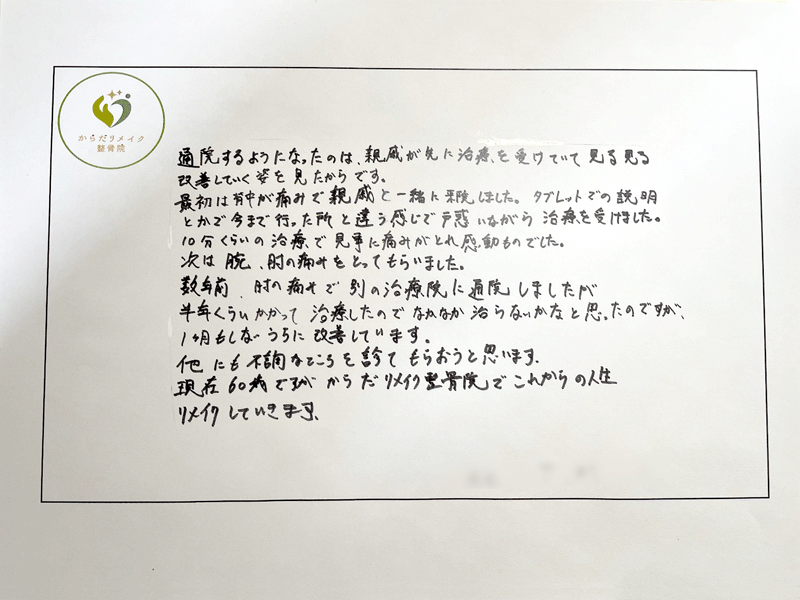 からだリメイク
整骨院
通院するようになったのは、親戚が先に治療を受けていて見る見る
改善していく姿を見たからです。
最初は背中が痛みで親戚と一緒に来院しました。タブレットでの説明
とかで今まで行った所と違う感じで戸惑いながら治療を受けました。
10分くらいの治療で見事に痛みがとれ感動ものでした。
次は腕、肘の痛みをとってもらいました。
数年前、肘の痛みで別の治療院に通院しましたが
半年くらいかかって治療したのでなかなか治らないかなと思ったのですが、
1ヶ月もしないうちに改善しています。
他にも不調なところを診てもらおうと思います。
現在60歳ですが からだリメイク整骨院でこれからの人生
リメイクしていきます。